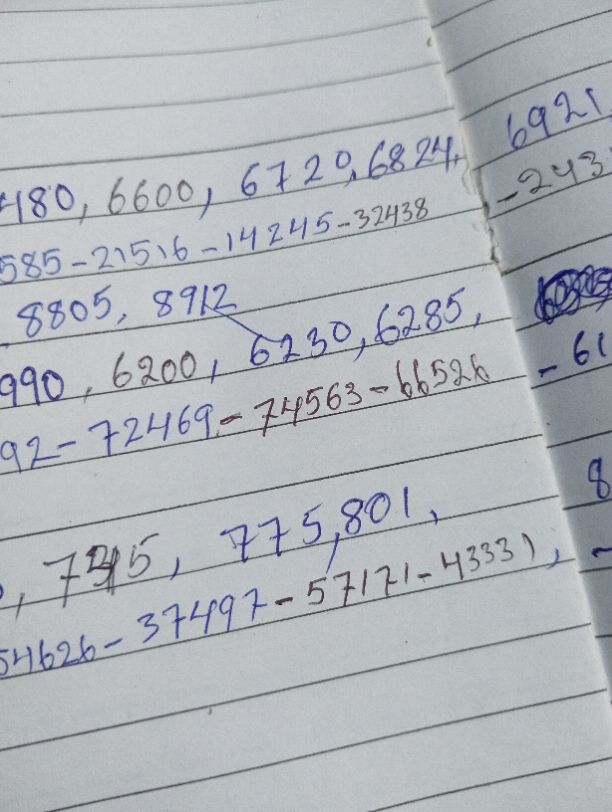 480, 6600, 6720, 6824, 6921
585-21516-14245-32438 -243
8805, 8912
990, 6200, 6230, 6285,
92-72469-74563-66526 -61
, 775, 801, 8
54626-37497-57171-43331, -